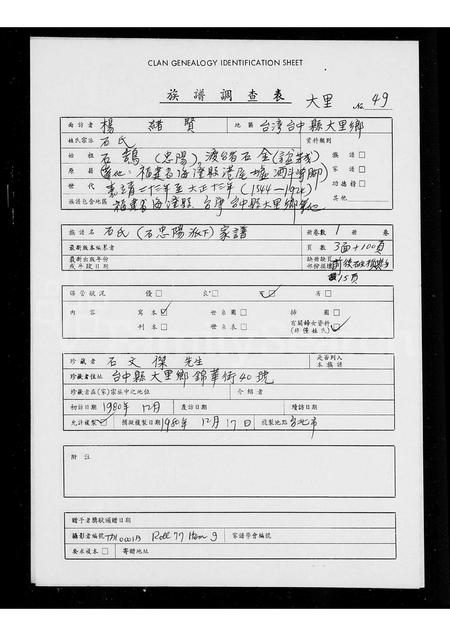 CLAN GENEALOGY IDENTIFICATION SHEET
族譜調查表 大里 No. 49
面訪者 楊緒賢 地區 台湾台中縣大里鄉
姓氏宗祠 石氏 資料類別
始祖 石鵠(忠陽),渡台石全 族譜 □
原縣 福建省海澄縣港尾 家譜 □
世代 嘉靖二十三年至大正十三年(1544-1924) 功德榜 □
族譜包含地區 福建省海澄縣,台湾台中縣大里鄉等地 其他
族譜名 石氏(石忠陽派下)家譜 册卷數 1 册卷
最新版本編纂者 頁數 3面+100頁
最新出版年份或年段日期 15頁
保管狀況 優 □ 良 □ 可 劣 □
內容 寫本 世系圖 □ 排圖 □
刊本 □ 世系表 □ 有關婦女資料(非僅姓氏)
珍藏者 石文傑 先生 是否列入本族譜
珍藏者住址 台中縣大里鄉錦華街40號
珍藏者在(家)宗族中之地位 介紹者
初訪日期 1980年12月 產訪日期 續訪日期
允許複製 擬複製日期 1980年12月17日 複製地點 台北市
附註
贈予者獎狀頒贈日期
攝影者編號 Roll 77 Item 9 家譜學會編號
要求複本 □ 寄贈地址